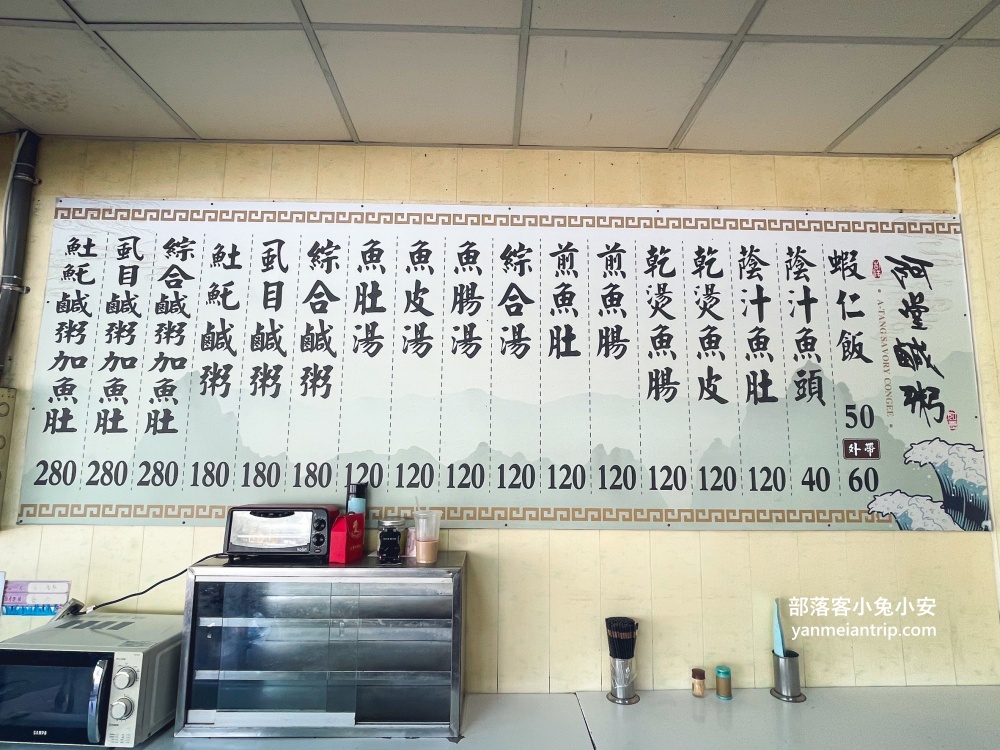 阿堂鹹粥
A-TANG SAVORY CONGEE
蝦仁飯 50
外帶 60
蔭汁魚頭 40
蔭汁魚肚 120
乾燙魚皮 120
乾燙魚腸 120
煎魚腸 120
煎魚肚 120
綜合湯 120
魚腸湯 120
魚皮湯 120
魚肚湯 120
綜合鹹粥 180
虱目鹹粥 180
𩵚魠鹹粥 180
綜合鹹粥加魚肚 280
虱目鹹粥加魚肚 280
𩵚魠鹹粥加魚肚 280
SAMPO
部落客小兔小安
yanmeiantrip.com